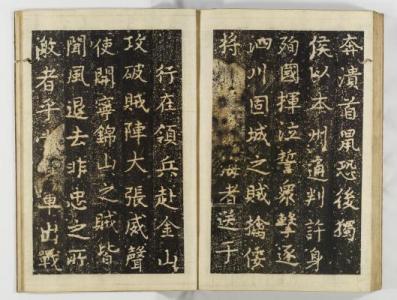 奔潰首鼠恐後獨
侯以本州通判許身
殉國揮泣誓衆擊逐
泗川固城之賊擒倭
將 海者送于
行在領兵赴金山
攻破賊陣大張威聲
使開寧錦山之賊皆
聞風退去非忠之所
敵者乎 車出戰